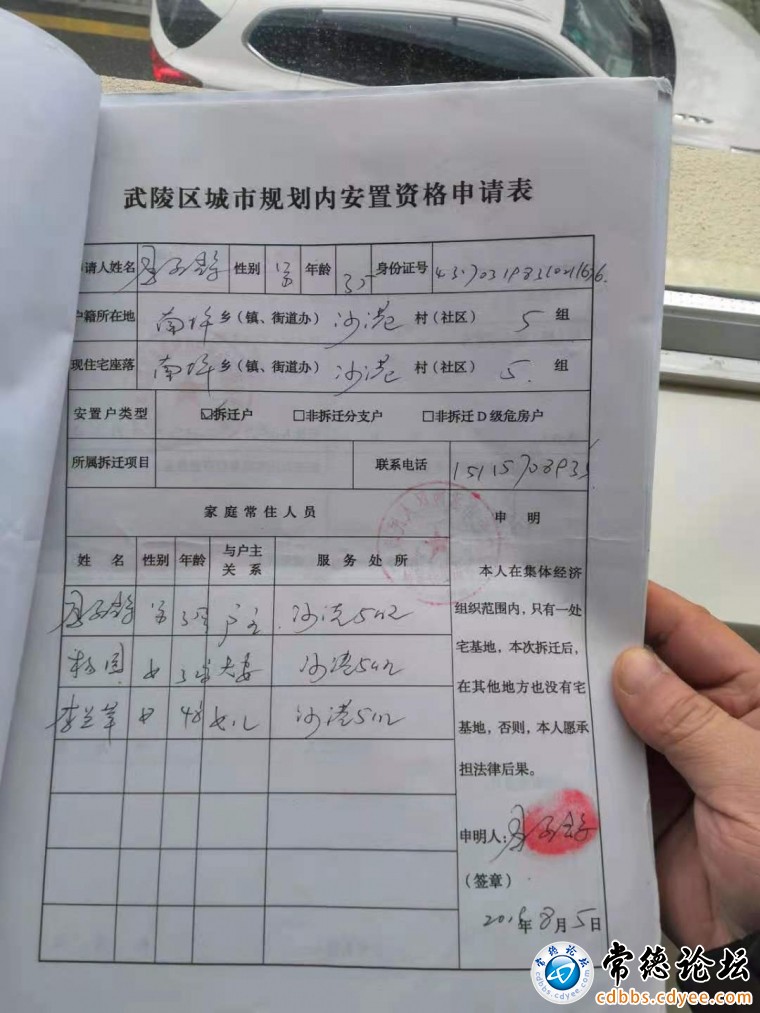 武陵区城市规划内安置资格申请表
请人姓名 性别 男 年龄 35 身份证号
户籍所在地 南坪 乡（镇、街道办） 沙港 村（社区） 5 组
现住宅座落 南坪 乡（镇、街道办） 沙港 村（社区） 5. 组
安置户类型 ☑拆迁户 □非拆迁分支户 □非拆迁D级危房户
所属拆迁项目 联系电话
家庭常住人员 申 明
姓 名 性别 年龄 与户主关系 服务处所
男 户主 沙港5组
女 夫妻 沙港5组
女 女儿 沙港5组
本人在集体经济
组织范围内，只有一处
宅基地，本次拆迁后，
在其他地方也没有宅
基地，否则，本人愿承
担法律后果。
申明人：
（签章）
2018年8月5日
常德论坛
常德论坛
cdbbs.cdyee.com